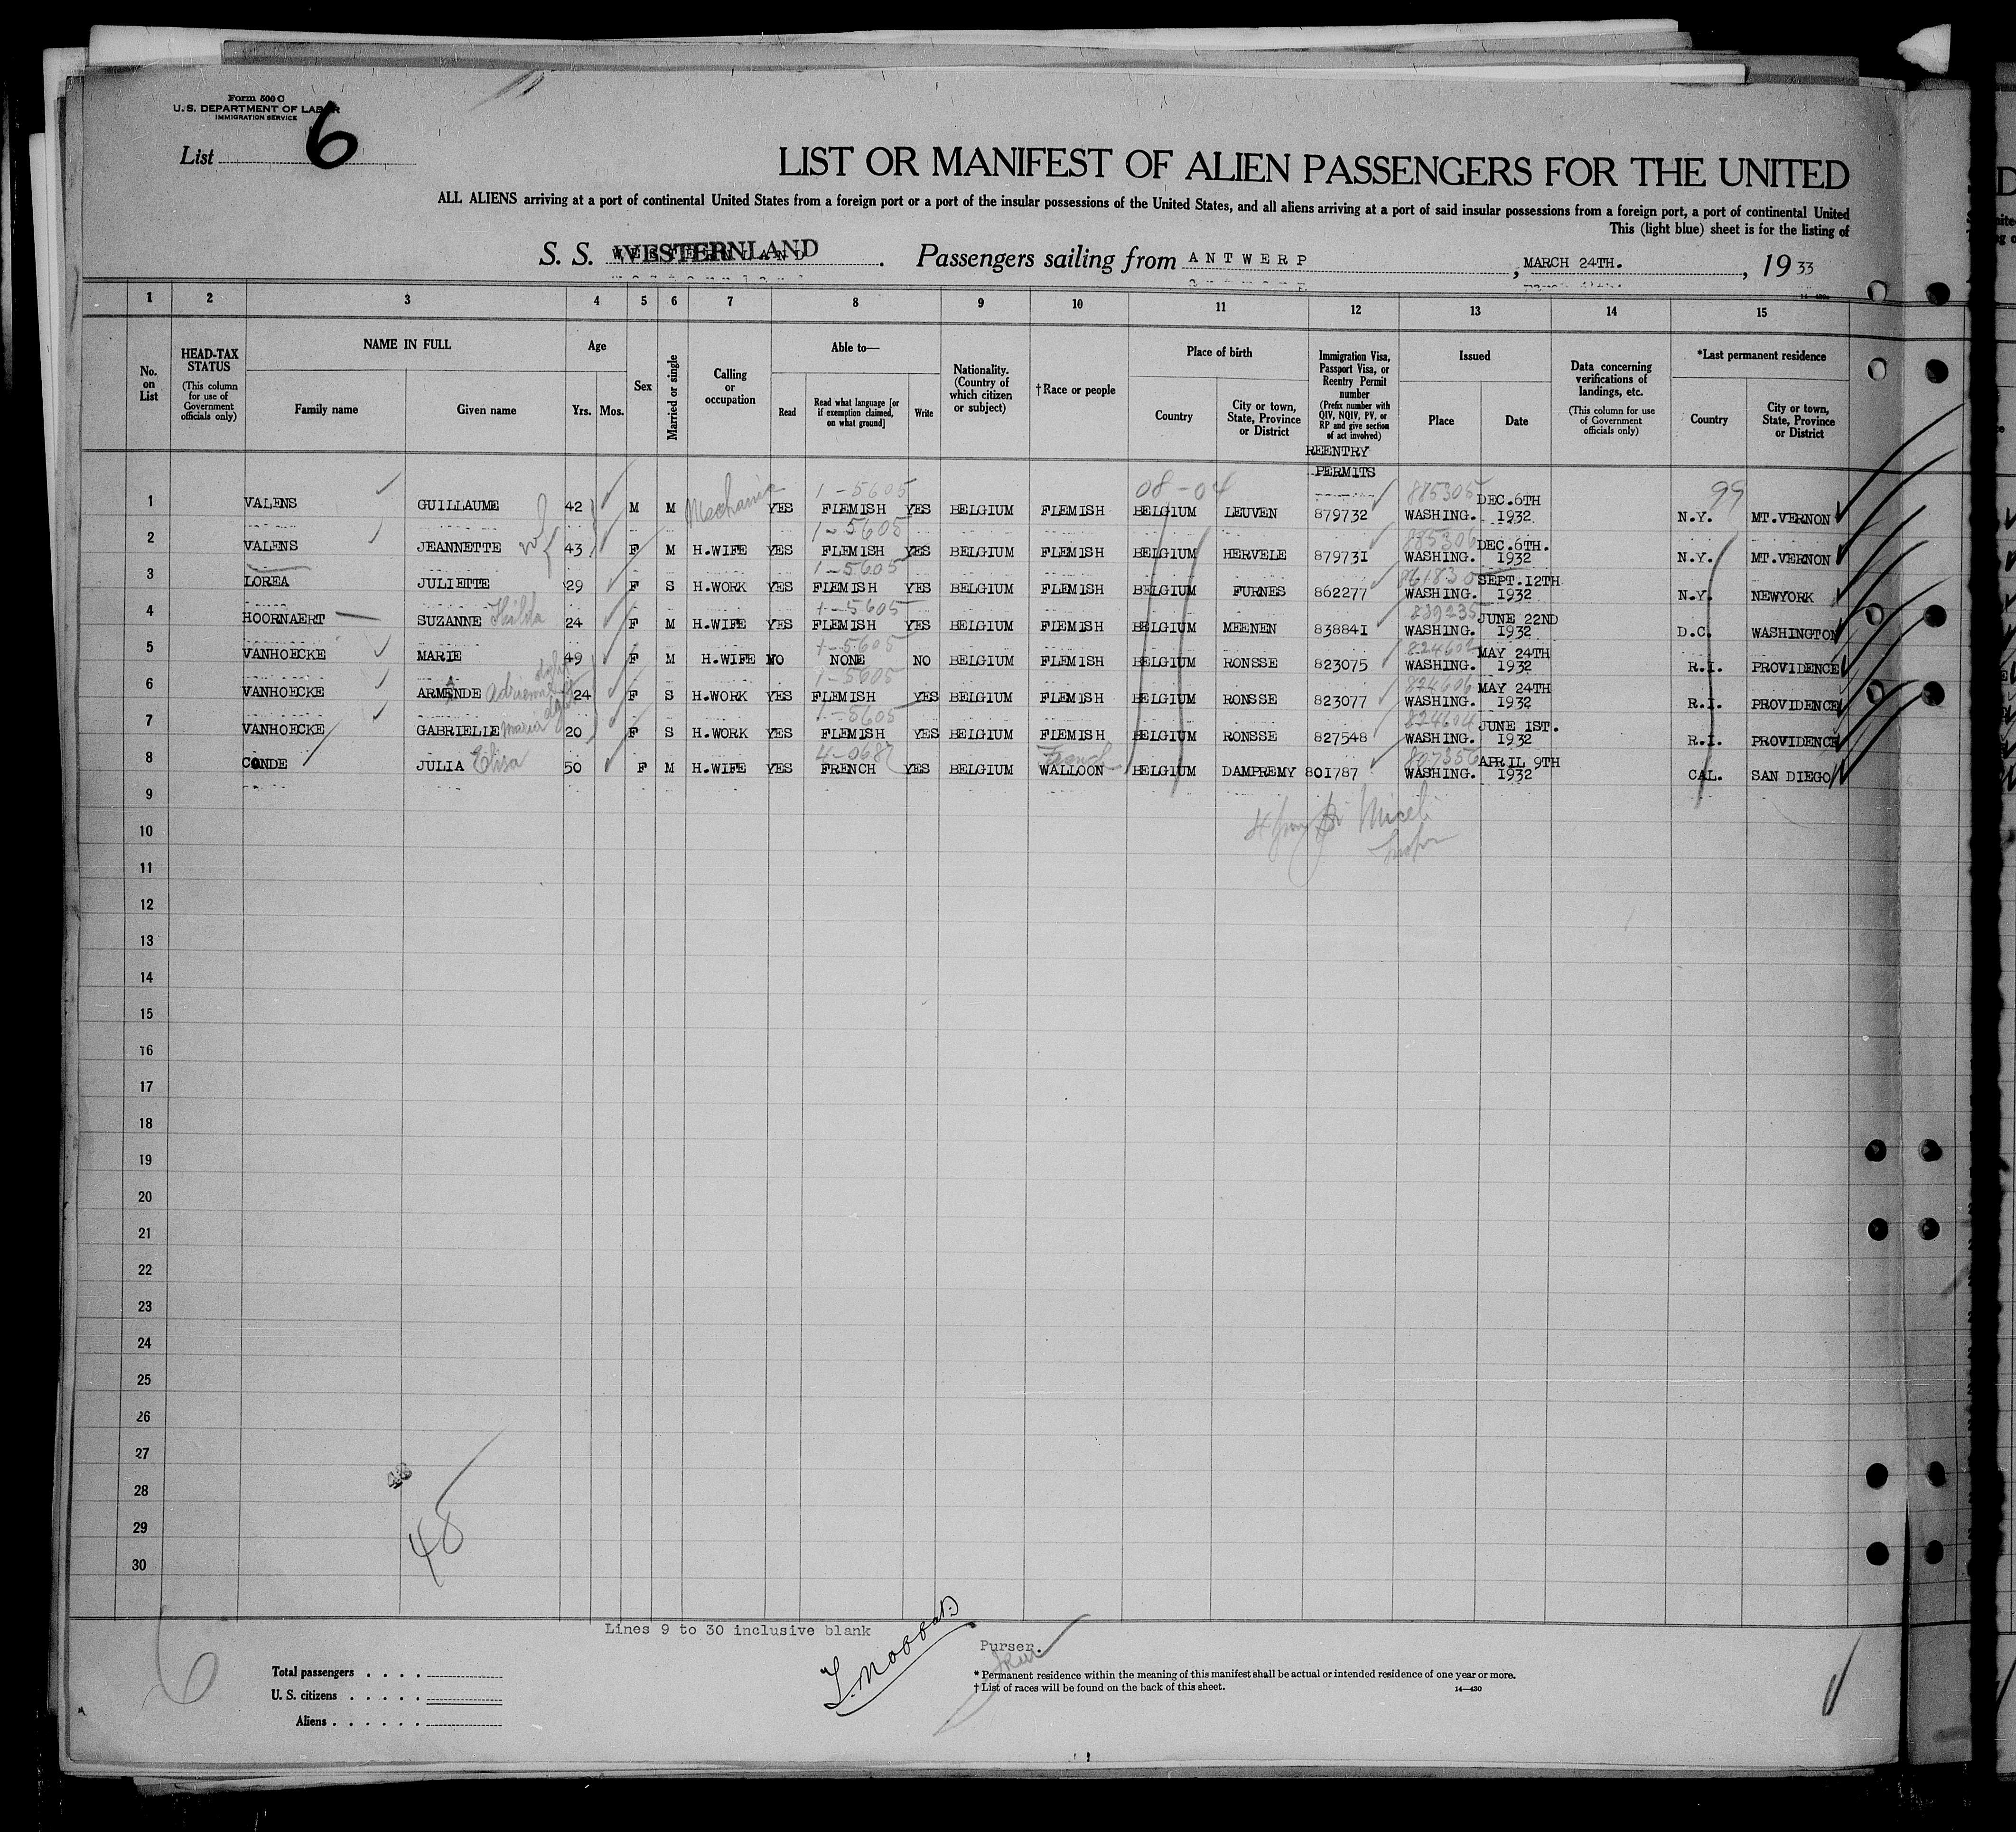 Form 500 C
U. S. DEPARTMENT OF LABOR
IMMIGRATION SERVICE
List 6
LIST OR MANIFEST OF ALIEN PASSENGERS FOR THE UNITED
ALL ALIENS arriving at a port of continental United States from a foreign port or a port of the insular possessions of the United States, and all aliens arriving at a port of said insular possessions from a foreign port, a port of continental United
This (light blue) sheet is for the listing of
S. S. WESTERNLAND. Passengers sailing from ANTWERP, MARCH 24TH., 1933
1 2 3 4 5 6 7 8 9 10 11 12 13 14 15
No. on List
HEAD-TAX STATUS (This column for use of Government officials only)
NAME IN FULL Family name Given name
Age Yrs. Mos.
Sex
Married or single
Calling or occupation
Able to— Read Read what language [or if exemption claimed, on what ground] Write
Nationality. (Country of which citizen or subject)
†Race or people
Place of birth Country City or town, State, Province or District
Immigration Visa, Passport Visa, or Reentry Permit number (Prefix number with QIV, NQIV, PV, or RP and give section of act involved)
Issued Place Date
Data concerning verifications of landings, etc. (This column for use of Government officials only)
*Last permanent residence Country City or town, State, Province or District
REENTRY PERMITS
1-5605 08-04 875305 99
1 VALENS GUILLAUME 42 M M Mechanic YES FLEMISH YES BELGIUM FLEMISH BELGIUM LEUVEN 879732 WASHING. DEC.6TH 1932 N.Y. MT.VERNON
1-5605 875306
2 VALENS JEANNETTE wf 43 F M H.WIFE YES FLEMISH YES BELGIUM FLEMISH BELGIUM HERVELE 879731 WASHING. DEC.6TH. 1932 N.Y. MT.VERNON
1-5605 861830
3 LOREA JULIETTE 29 F S H.WORK YES FLEMISH YES BELGIUM FLEMISH BELGIUM FURNES 862277 WASHING. SEPT.12TH 1932 N.Y. NEWYORK
1-5605 839235
4 HOORNAERT SUZANNE Hilda 24 F M H.WIFE YES FLEMISH YES BELGIUM FLEMISH BELGIUM MEENEN 838841 WASHING. JUNE 22ND 1932 D.C. WASHINGTON
1-5605 824602
5 VANHOECKE MARIE 49 F M H.WIFE NO NONE NO BELGIUM FLEMISH BELGIUM RONSSE 823075 WASHING. MAY 24TH 1932 R.I. PROVIDENCE
1-5605 824606
6 VANHOECKE ARMANDE 24 F S H.WORK YES FLEMISH YES BELGIUM FLEMISH BELGIUM RONSSE 823077 WASHING. MAY 24TH 1932 R.I. PROVIDENCE
1-5605 824604
7 VANHOECKE GABRIELLE Maria 20 F S H.WORK YES FLEMISH YES BELGIUM FLEMISH BELGIUM RONSSE 827548 WASHING. JUNE 1ST. 1932 R.I. PROVIDENCE
4-0687 French 807356
8 CONDE JULIA Elisa 50 F M H.WIFE YES FRENCH YES BELGIUM WALLOON BELGIUM DAMPREMY 801787 WASHING. APRIL 9TH 1932 CAL. SAN DIEGO
9
10
11
12
13
14
15
16
17
18
19
20
21
22
23
24
25
26
27
28
29
30
48
Lines 9 to 30 inclusive blank
Purser.
6
Total passengers
U. S. citizens
Aliens
* Permanent residence within the meaning of this manifest shall be actual or intended residence of one year or more.
† List of races will be found on the back of this sheet.
14—430